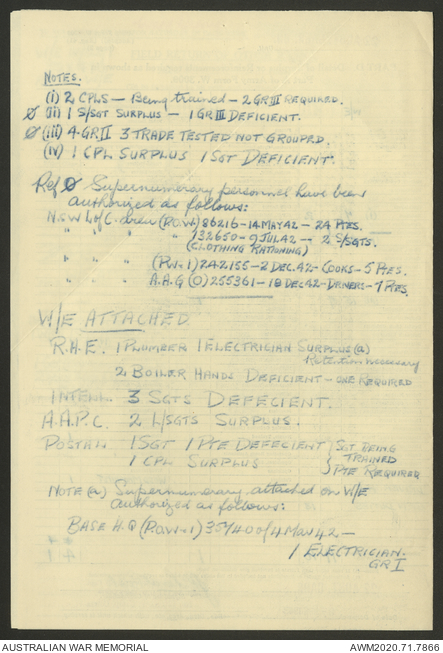 NOTES.
(i) 2 CPLS — Being trained — 2 GR III REQUIRED.
Ø (ii) 1 S/SGT SURPLUS — 1 GR III DEFICIENT.
Ø (iii) 4 GR II 3 TRADE TESTED NOT GROUPED.
(iv) 1 CPL SURPLUS 1 SGT DEFICIENT.
Ref Ø Supernumerary personnel have been
authorized as follows:
N.S.W. L of C. Area (P.O.W.) 86216 - 14 MAY 42 - 24 PTES.
" " " " 132650 - 9 JUL 42 - 2 S/SGTS.
(CLOTHING RATIONING)
" " " 242155 - 2 DEC. 42 - COOKS - 5 PTES.
" " " A.H.Q (O) 255361 - 18 DEC 42 - DRIVERS - 7 PTES.
W/E ATTACHED
R.A.E. 1 PLUMBER 1 ELECTRICIAN SURPLUS (a)
Retention necessary
2 BOILER HANDS DEFICIENT - ONE REQUIRED
INTELL 3 SGTS DEFECIENT.
A.A.P.C. 2 L/SGTS SURPLUS.
POSTAL 1 SGT 1 PTE DEFECIENT } SGT BEING
TRAINED
1 CPL SURPLUS } PTE REQUIRED
NOTE (a) Supernumerary attached on W/E
authorized as follows:
BASE H.Q of 4 MAY 42 —
1 ELECTRICIAN.
GR I
AUSTRALIAN WAR MEMORIAL
AWM2020.71.7866